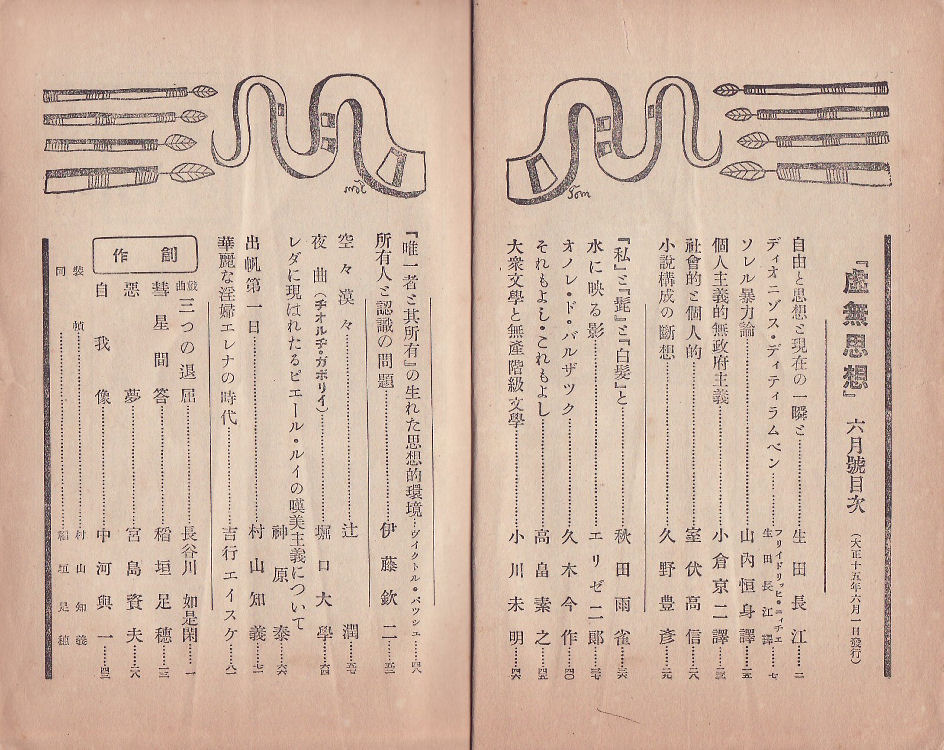 『虛無思想』 六月號目次 (大正十五年六月一日發行)
自由と思想と現在の一瞬と……生田長江……二
ディオニゾス・ディティラムベン……フリイドリッヒ・ニイチエ 生田長江譯……七
ソレル暴力論……山內恒身譯……一五
個人主義的無政府主義……小倉京二譯……
社會的と個人的……室伏高信……一八
小說構成の斷想……久野豊彦……二九
『私』と『髭』と『白髮』と……秋田雨雀……三六
水に映る影……エリゼ二郞……三七
オノレ・ド・バルザツク……久木今作……四〇
それもよし・これもよし……高畠素之……四五
大衆文學と無產階級文學……小川未明……四六
Tom
『唯一者と其所有』の生れた思想的環境……ヴイクトル・バツシユ……四八
所有人と認識の問題……伊藤欽二……
空々漠々……辻潤……
夜曲(チオルチ・ガボリイ)……堀口大學……六四
レダに現はれたるピエール・ルイの嘆美主義について
神原泰……六六
出帆第一日……村山知義……七一
華麗な淫婦エレナの時代……吉行エイスケ……八一
創作
戲曲 三つの退屈……長谷川如是閑……一
彗星問答……稻垣足穗……一三
惡夢……宮島資夫……二八
自我像……中河與一……四三
裝幀……村山知義
同……稻垣足穗